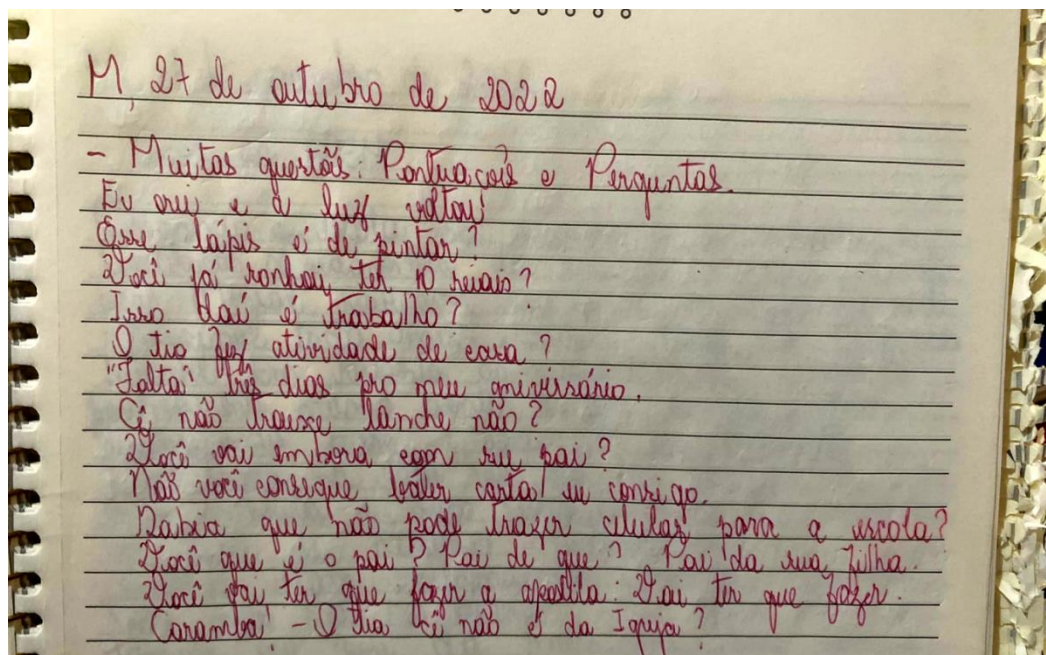 M, 27 de outubro de 2022
- Muitas questões: Pontuações e Perguntas.
Eu orei e a luz voltou!
Esse lápis é de pintar?
Você já sonhou ter 10 reais?
Isso daí é trabalho?
O tio fez atividade de casa?
"Falta" três dias pro meu aniversário.
Cê não trouxe lanche não?
Você vai embora com seu pai?
Não você consegue bater carta! eu consigo.
Sabia que não pode trazer celular para a escola?
Você que é o pai? Pai de que? Pai da sua filha.
Você vai ter que fazer a apostila: Vai ter que fazer.
Caramba! - O tia cê não é da Igreja?